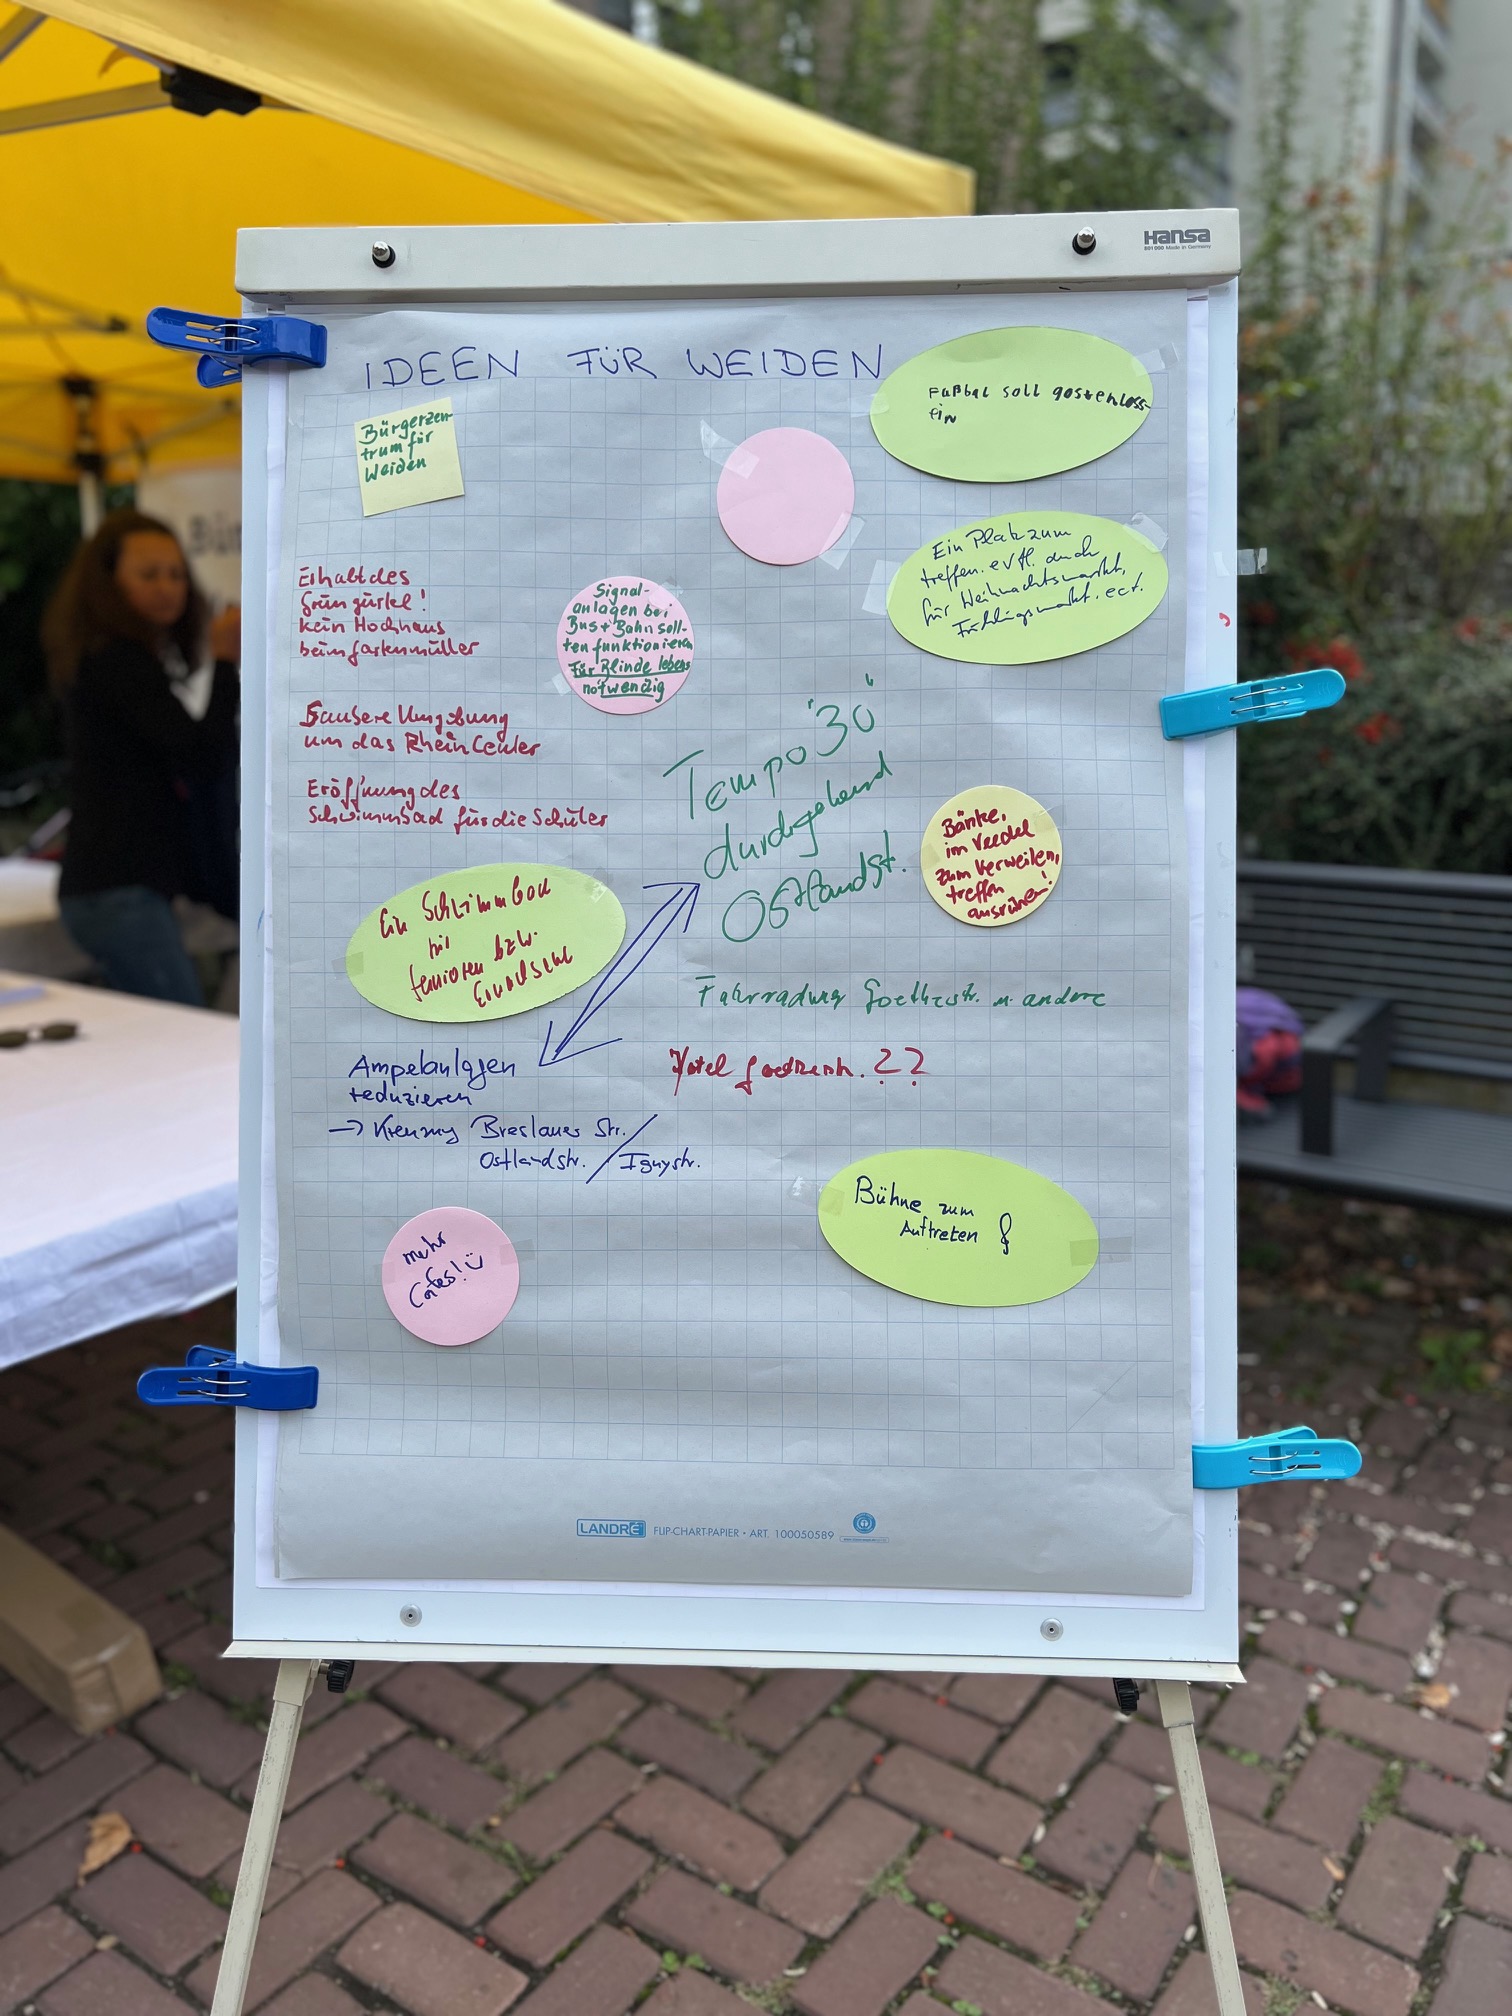 Hansa
IDEEN FÜR WEIDEN
Fußbal soll gostenloss
ein
Bürgerzen-
trum für
Weiden
Ein Platz zum
treffen. evtl. auch
für Weihnachtsmarkt,
Frühlingsmarkt. ect.
Erhalt des
Grüngürtel!
kein Hochhaus
beim Gartenmüller
Signal-
anlagen bei
Bus + Bahn soll-
ten funktionieren
Für Blinde lebens
notwendig
Saubere Umgebung
um das Rhein Center
Eröffnung des
Schwimmbad für die Schüler
Tempo "30"
durchgehend
Ostlandst.
Bänke,
im Veedel
zum Verweilen,
treffen
ausruhen!
Ein Schwimmbad
für
Senioren bzw.
Fahrradweg Goethestr. u. andere
Ampelanlagen
reduzieren
Hotel ??
→ Kreuzung Breslauer Str. /
Ostlandstr. / Ignystr.
Bühne zum
Auftreten
mehr
Cafes! Ü
LANDRÉ FLIP-CHART-PAPIER • ART. 100050589